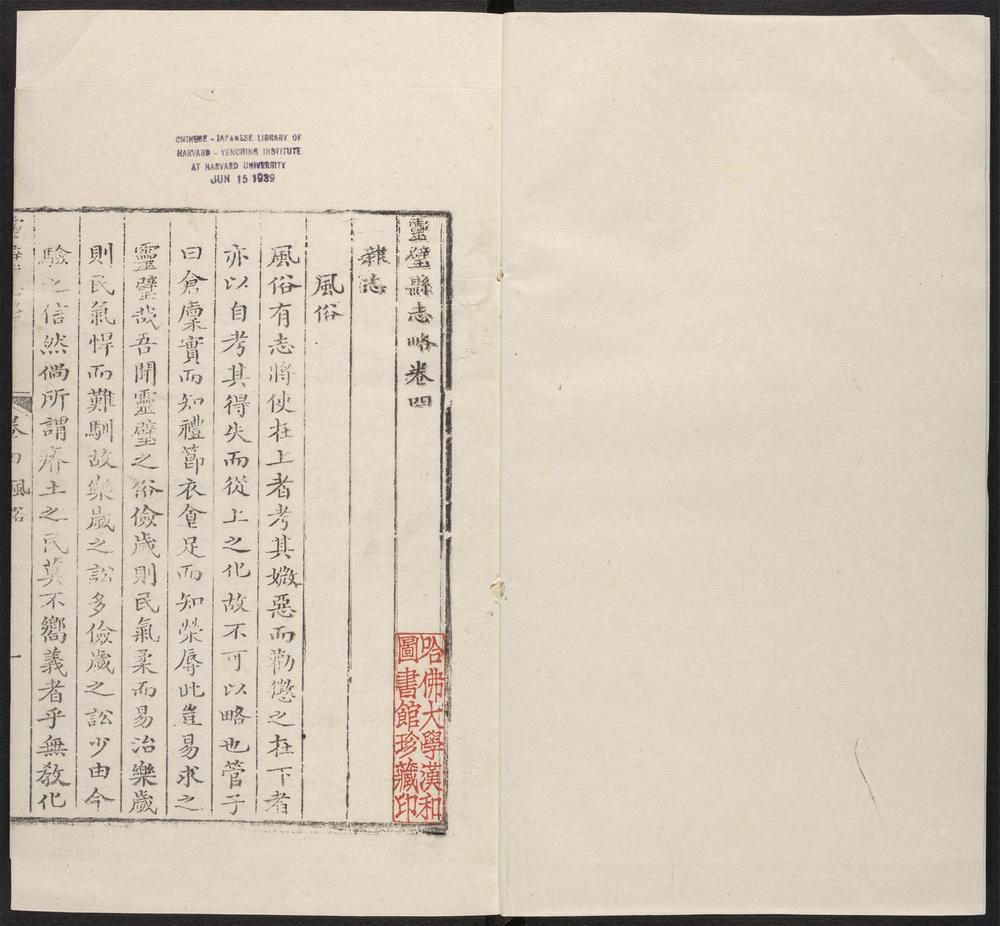 CHINESE - JAPANESE LIBRARY OF
HARVARD - YENCHING INSTITUTE
AT HARVARD UNIVERSITY
JUN 15 1939
靈璧縣志略卷四
雜志
風俗
風俗有志將使在上者考其媺惡而勸懲之在下者
亦以自考其得失而從上之化故不可以略也管子
曰倉廩實而知禮節衣食足而知榮辱此豈易求之
靈璧哉吾聞靈璧之俗儉歲則民氣柔而易治樂歲
則民氣悍而難馴故樂歲之訟多儉歲之訟少由今
驗之信然倘所謂瘠土之民莫不嚮義者乎無敎化
卷四 風俗
一
哈佛大學漢和
圖書館珍藏印